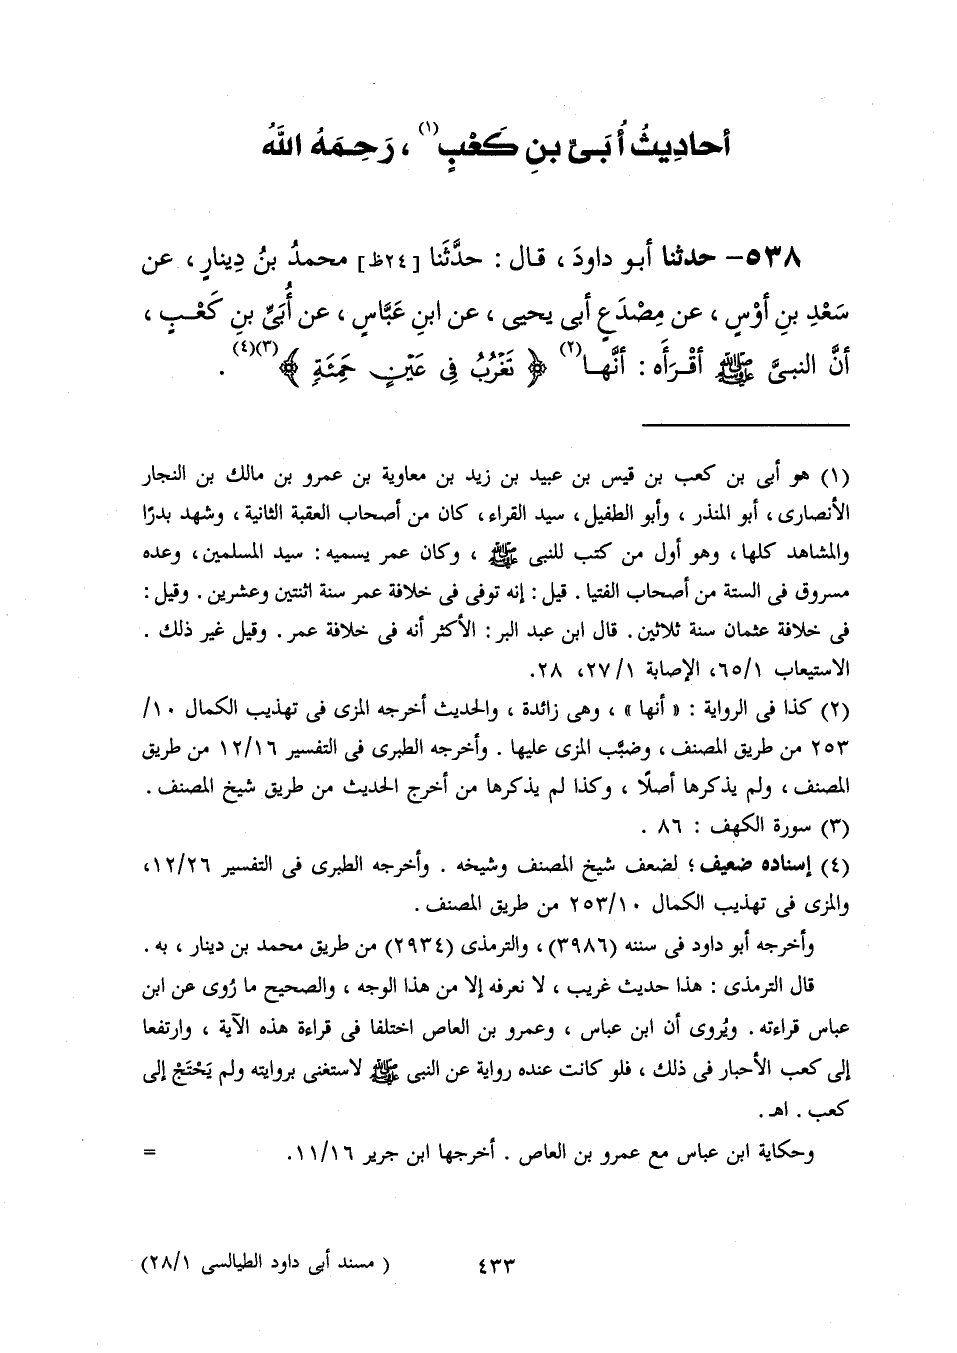 أحاديثُ أُبَىِّ بنِ كَعْبٍ(١)، رَحِمَهُ اللَّهُ
٥٣٨- حدثنا أبو داودَ، قال: حدَّثَنا [٢٤ظ] محمدُ بنُ دِينارٍ، عن
سَعْدِ بنِ أوْسٍ، عن مِصْدَعٍ أبى يحيى، عن ابنِ عَبَّاسٍ، عن أُبَىِّ بنِ كَعْبٍ،
أنَّ النبىَّ ﷺ أقْرَأَه: أنَّها(٢) ﴿ تَغْرُبُ فِى عَيْنٍ حَمِئَةٍ ﴾(٣)(٤).
(١) هو أبى بن كعب بن قيس بن عبيد بن زيد بن معاوية بن عمرو بن مالك بن النجار
الأنصارى، أبو المنذر، وأبو الطفيل، سيد القراء، كان من أصحاب العقبة الثانية، وشهد بدرًا
والمشاهد كلها، وهو أول من كتب للنبى ﷺ، وكان عمر يسميه: سيد المسلمين، وعده
مسروق فى الستة من أصحاب الفتيا. قيل: إنه توفى فى خلافة عمر سنة اثنتين وعشرين. وقيل:
فى خلافة عثمان سنة ثلاثين. قال ابن عبد البر: الأكثر أنه فى خلافة عمر. وقيل غير ذلك.
الاستيعاب ١/ ٦٥، الإصابة ١/ ٢٧، ٢٨.
(٢) كذا فى الرواية: « أنها »، وهى زائدة، والحديث أخرجه المزى فى تهذيب الكمال ١٠/
٢٥٣ من طريق المصنف، وضبَّب المزى عليها. وأخرجه الطبرى فى التفسير ١٦/ ١٢ من طريق
المصنف، ولم يذكرها أصلًا، وكذا لم يذكرها من أخرج الحديث من طريق شيخ المصنف.
(٣) سورة الكهف: ٨٦.
(٤) إسناده ضعيف؛ لضعف شيخ المصنف وشيخه. وأخرجه الطبرى فى التفسير ٢٦/ ١٢،
والمزى فى تهذيب الكمال ١٠/ ٢٥٣ من طريق المصنف.
وأخرجه أبو داود فى سننه (٣٩٨٦)، والترمذى (٢٩٣٤) من طريق محمد بن دينار، به.
قال الترمذى: هذا حديث غريب، لا نعرفه إلا من هذا الوجه، والصحيح ما رُوى عن ابن
عباس قراءته. ويُروى أن ابن عباس، وعمرو بن العاص اختلفا فى قراءة هذه الآية، وارتفعا
إلى كعب الأحبار فى ذلك، فلو كانت عنده رواية عن النبى ﷺ لاستغنى بروايته ولم يَحْتَجْ إلى
كعب. اهـ.
وحكاية ابن عباس مع عمرو بن العاص. أخرجها ابن جرير ١٦/ ١١. =
٤٣٣ ( مسند أبى داود الطيالسى ١/ ٢٨)